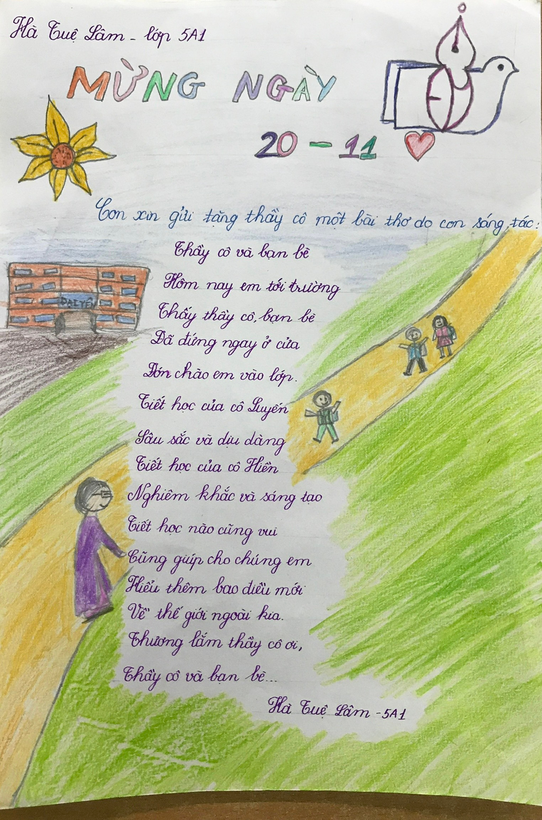 Hà Tuệ Lâm - lớp 5A1
MỪNG NGÀY
20 - 11
Con xin gửi tặng thầy cô một bài thơ do con sáng tác:
Thầy cô và bạn bè
Hôm nay em tới trường
Thấy thầy cô, bạn bè
Đã đứng ngay ở cửa
Đón chào em vào lớp.
Tiết học của cô Luyến
Sâu sắc và dịu dàng
Tiết học của cô Hiền
Nghiêm khắc và sáng tạo
Tiết học nào cũng vui
Cũng giúp cho chúng em
Hiểu thêm bao điều mới
Về thế giới ngoài kia.
Thương lắm thầy cô ơi,
Thầy cô và bạn bè...
Hà Tuệ Lâm - 5A1